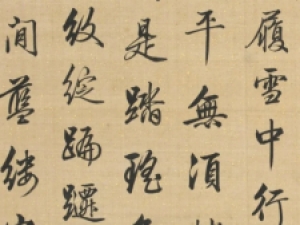 履雪中行
平無須
是踏瑤
紋綻蹁躚
間藍縷